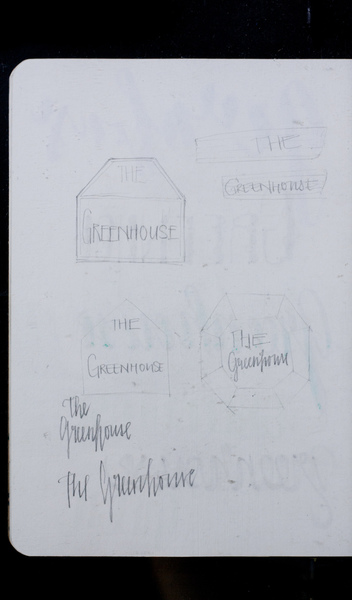 THE
GREENHOUSE
THE
GREENHOUSE
THE
GREENHOUSE
THE
Greenhouse
The
Greenhouse
The Greenhouse